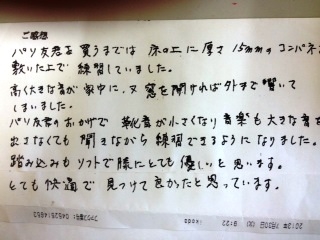 ご感想
パリ友君を買うまでは 床の上に厚さ 15mmのコンパネを
敷いた上で 練習していました。
高く大きな音が 家中に、又 窓を開ければ外まで響いて
しまいました。
パリ友君のおかげで 靴音が小さくなり 音楽も大きな音を
出さなくても 聞きながら練習できるようになりました。
踏み込みもソフトで膝にとても優しいと思います。
とても快適で 見つけて良かったと思っています。
2013年 1月30日(水) 9:22